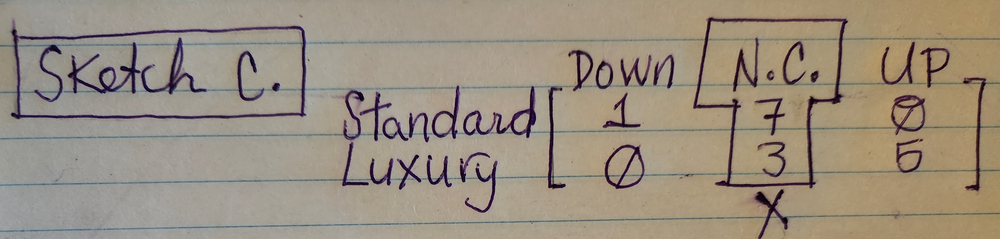 Sketch C.
Down N.C. UP
Standard [ 1 7 Ø ]
Luxury [ Ø 3 5 ]
X